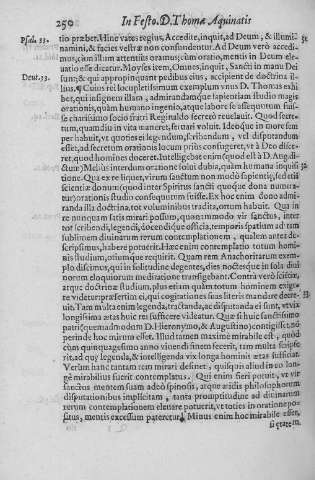 250 In Festo D. Thomæ Aquinatis
Psal. 33. tio præbet. Hinc vates regius, Accedite, inquit, ad Deum, & illumi- 31
namini, & facies vestræ non confundentur. Ad Deum verò accedi-
mus, cùm illum attentiùs oramus; cùm oratio, mentis in Deum ele-
uatio esse dicatur. Moyses item, Omnes, inquit, Sancti in manu Dei
Deut. 33. sunt; & qui appropinquant pedibus eius, accipient de doctrina il-
lius. Cuius rei locupletissimum exemplum vnus D. Thomas exhi-
bet, qui insignem illam, admirandamque sapientiam studio magis
orationis, quàm humano ingenio, atque labore se assequutum fuis-
se charissimo socio fratri Reginaldo secretò reuelauit. Quod secre-
tum, quamdiu in vita maneret, seruari voluit. Idque in more sem-
per habuit, vt quoties ei legendum, scribendum, vel disputandum
esset, ad secretum orationis locum priùs confugeret, vt à Deo disce-
ret, quod homines doceret. Intelligebat enim (quod est à D. Aug. di-
ctum) Melius interdum oratione solui dubia, quàm humana inquisi- 32
tione. Qua ex re liquet, virum sanctum non modò sapientię, sed etiã
scientiæ donum (quod inter Spiritus sancti quoque dona numera-
tur) orationis studio consequutum fuisse. Ex hoc enim dono admi-
randa illa doctrina, tot voluminibus tradita, ortum habuit. Qua in
re nunquam satis mirari possum, quonammodo vir sanctus, inter
tot scribendi, legendi, docendique officia, temporis spatium ad tam
sublimem diuinarum rerum contemplationem, qualem antè de-
scripsimus, habere potuerit. Hæc enim contemplatio totum homi-
nis studium, otiumque requirit. Quam rem Anachoritarum exem-
plo discimus, qui in solitudine degentes, dies noctesque in sola diui-
norum eloquiorum meditatione transigebant. Contrà verò scientiæ,
atque doctrinæ studium, plus etiam quàm totum hominem exige-
re videtur: præsertim ei, qui cogitationes suas literis mandare decre- 33
uit. Tam multa enim legenda, scrutanda, ac disputanda ei sunt, vt vix
longissima ætas huic rei sufficere videatur. Quæ si huic sanctissimo
patri (quemadmodum D. Hieronymo, & Augustino) contigisset, nõ
perinde hoc mirum esset. Illud tamen maximè mirabile est, quòd
cùm quinquagesimo anno viuendi finem fecerit, tam multa scripse-
rit, ad quę legenda, & intelligenda vix longa hominis ætas sufficiat.
Verùm hanc tantam rem mirari desinet, quisquis aliud in eo lon-
gè mirabilius fuerit contemplatus. Qui enim fieri potuit, vt vir
sanctus mentem suam adeò spinosis, atque aridis philosophorum
disputationibus implicitam, tanta promptitudine ad diuinarum
rerum contemplationem eleuare potuerit, vt toties in oratione po-
situs, mentis excessum pateretur? Minus enim hoc mirabile esset,
si ętatem,